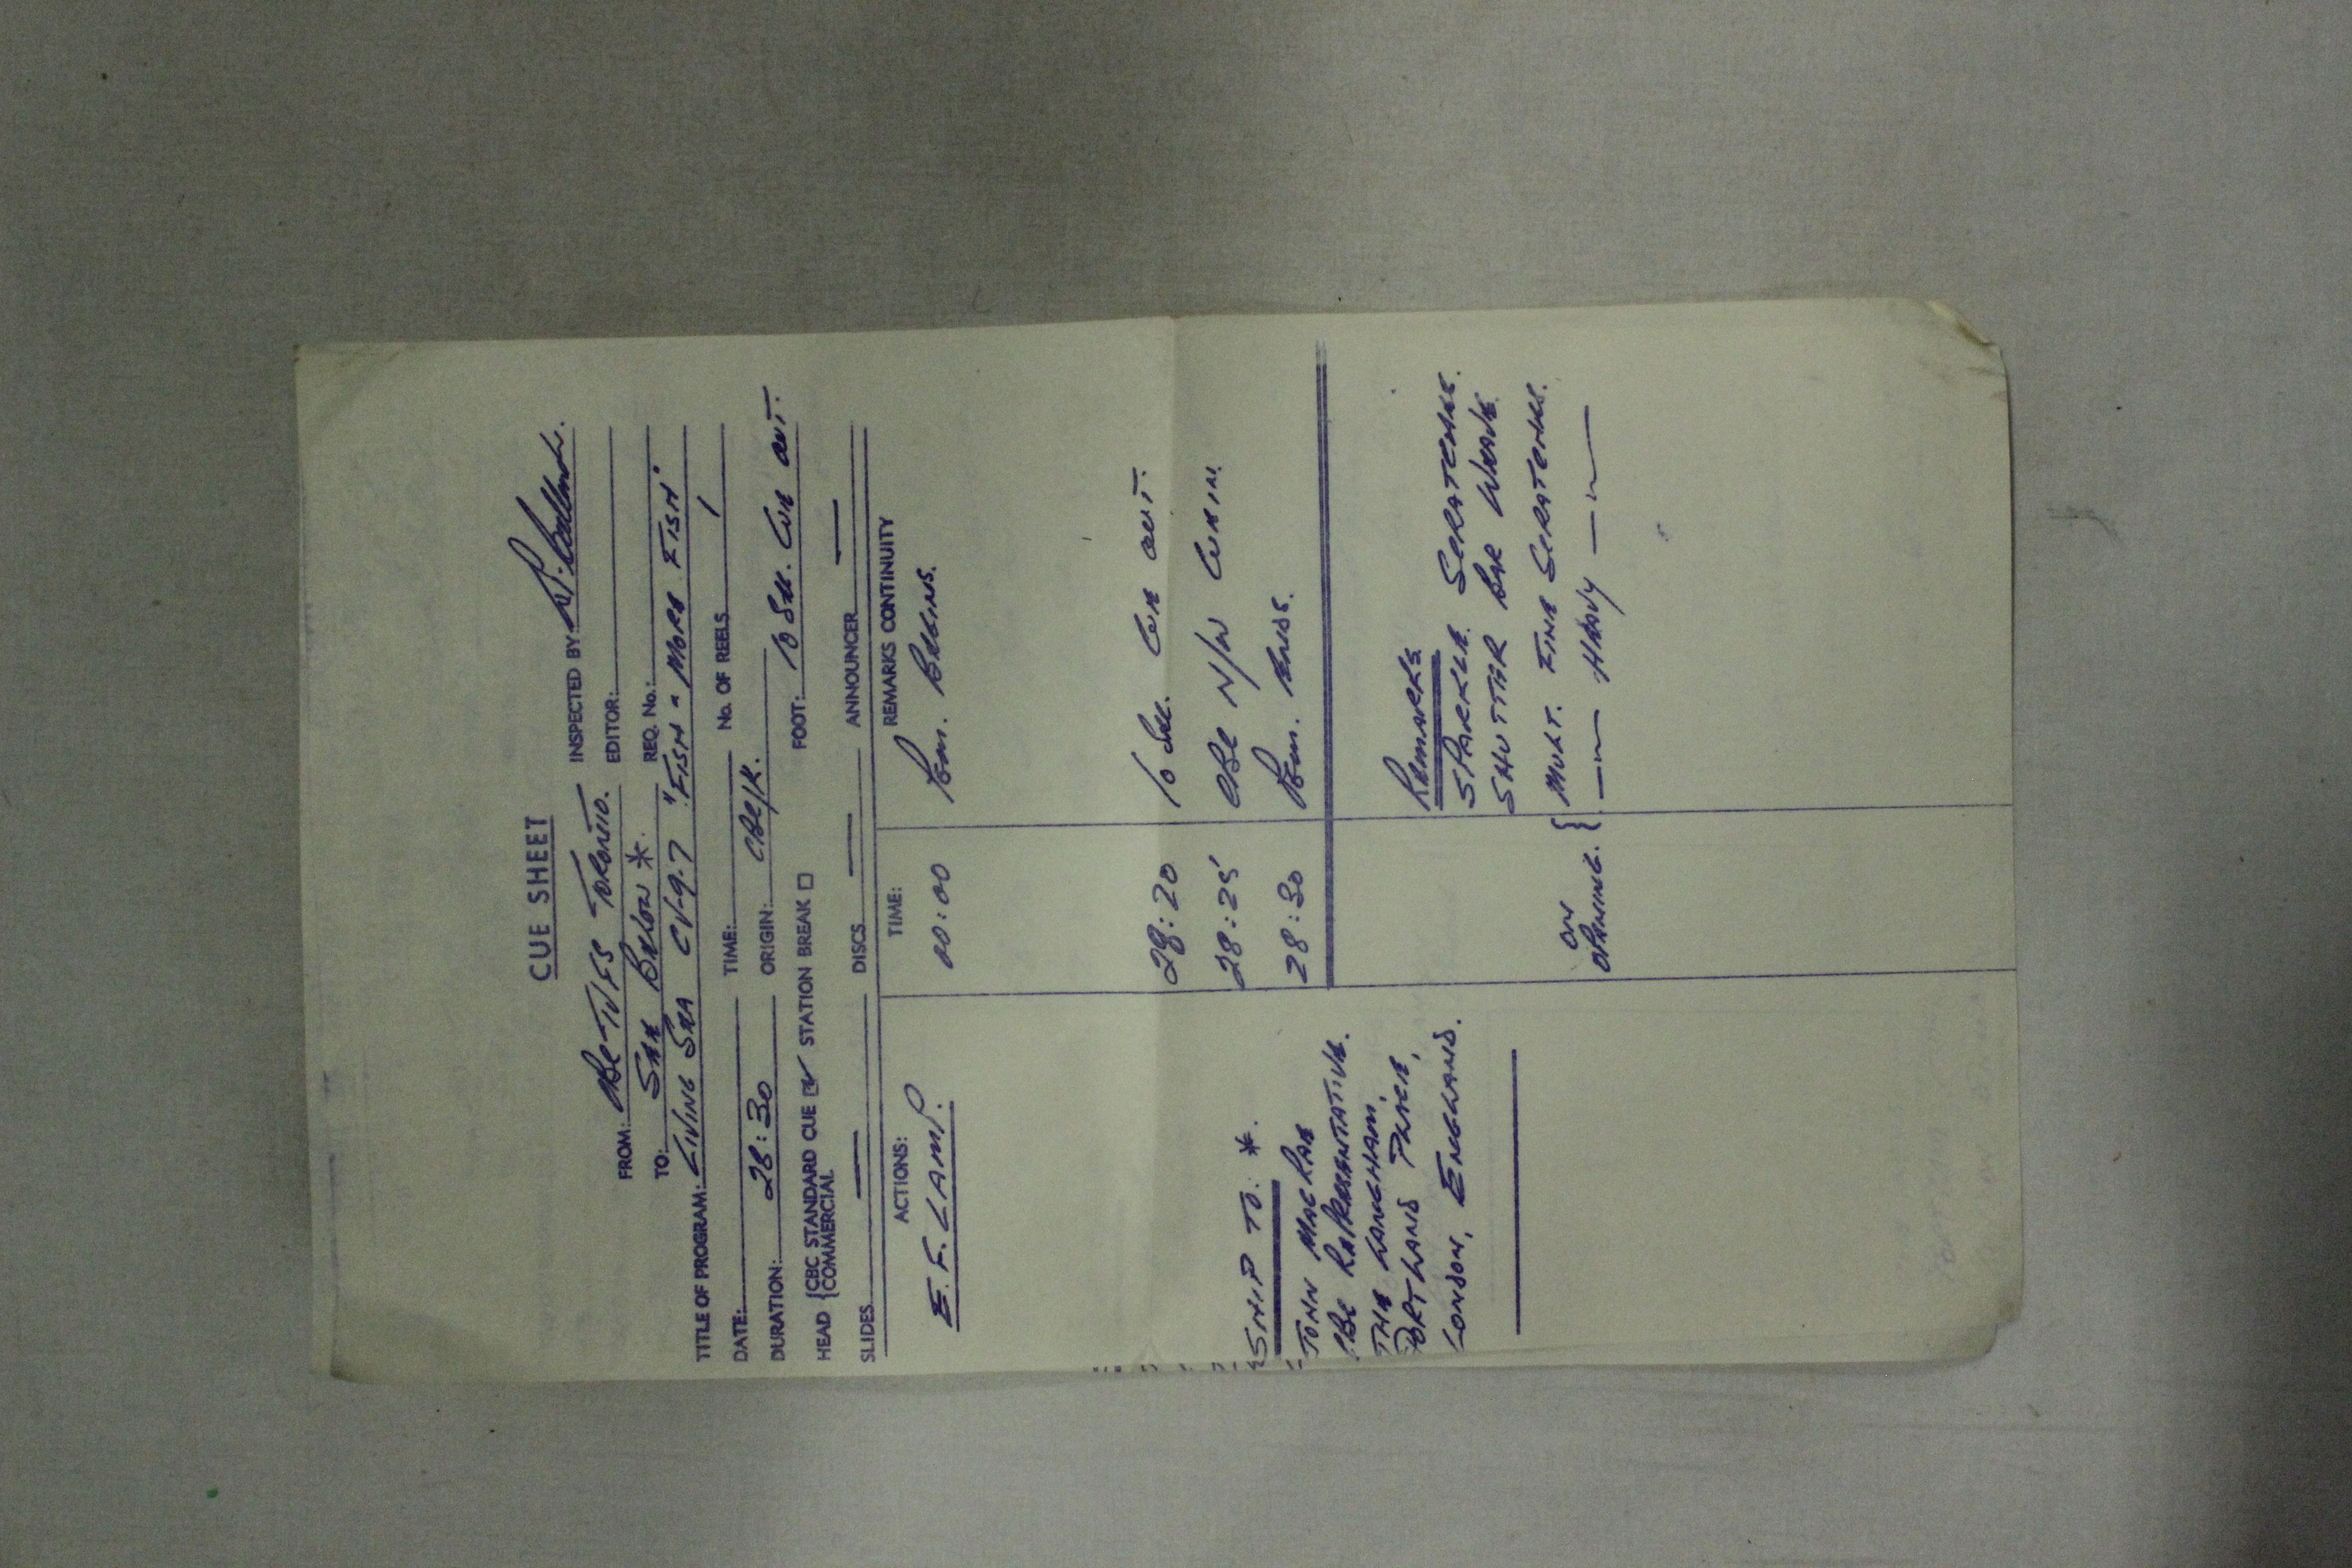 CUE SHEET
FROM: CBC-TVFS TORONTO. INSPECTED BY:
TO: SEE BELOW * EDITOR:
REQ. No.:
TITLE OF PROGRAM: LIVING SEA CV-9-7 "FISH & MORE FISH"
DATE: TIME: No. OF REELS 1
DURATION: 28:30 ORIGIN: CBC/K.
HEAD { CBC STANDARD CUE ✓ STATION BREAK □ FOOT: 10 SEC. CUE OUT.
COMMERCIAL
SLIDES — DISCS — ANNOUNCER —
ACTIONS: TIME: REMARKS CONTINUITY
E.F. LAMP. 00:00 BEGINS.
28:20 10 SEC. CUE OUT.
28:25 CBC N/W CUE IN.
28:30 ENDS.
SHIP TO: *.
JOHN MACRAE
CBC REPRESENTATIVE.
THE LANGHAM,
PORTLAND PLACE,
LONDON, ENGLAND.
REMARKS
SPARKLE SCRATCHES.
SHUTTER BAR WEAVE.
ON OPENING. { MULT. FINE SCRATCHES.
—〃— HEAVY —〃—